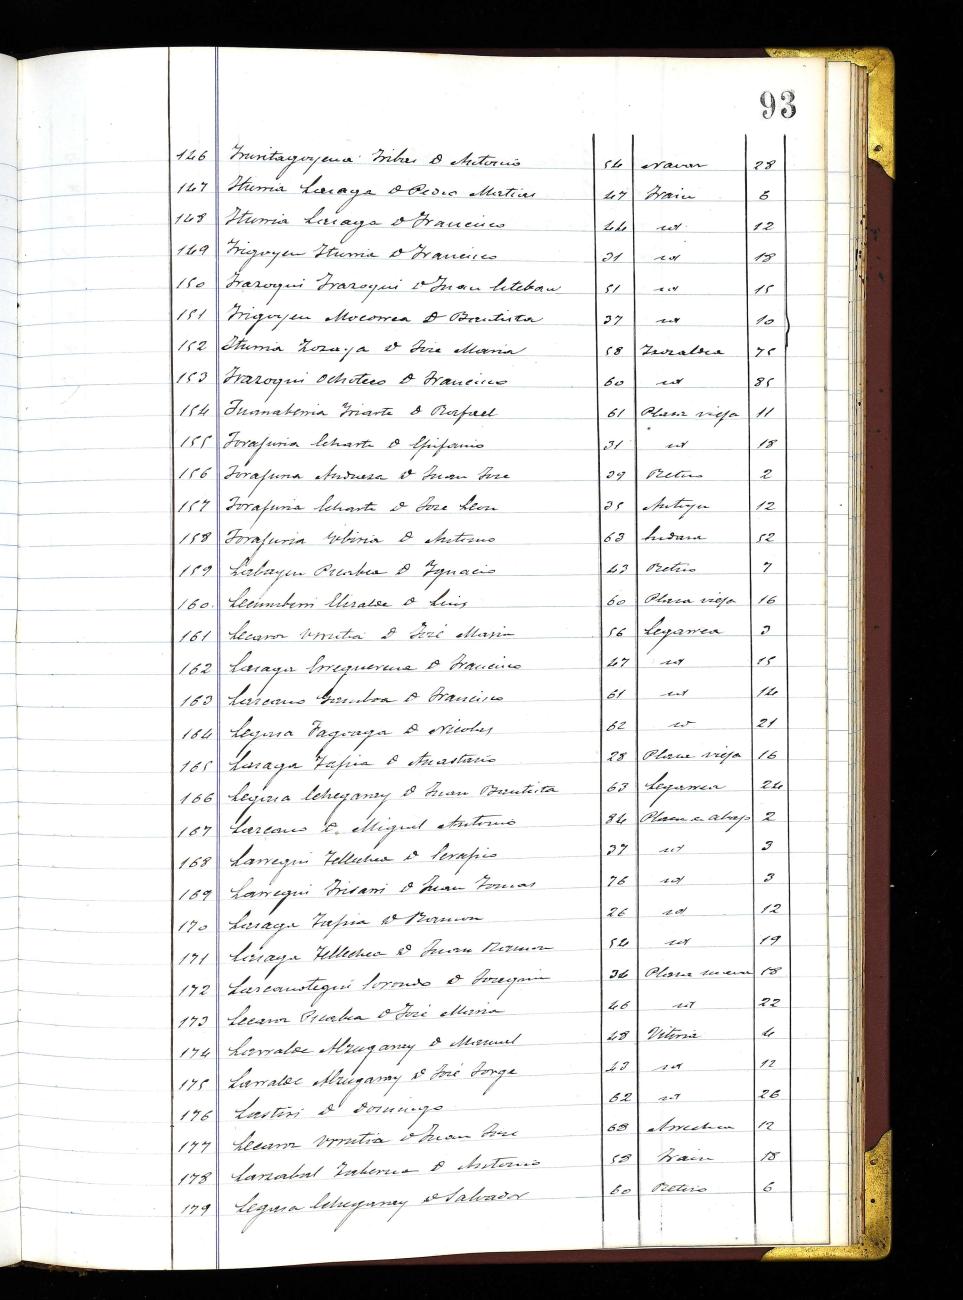 93
146 Iruretagoyena Iribas D Antonio 54 Navar 28
147 Iturria Lasaga D Pedro Matias 47 Irain 6
148 Iturria Lasaga D Francisco 44 id 12
149 Irigoyen Iturria D Francisco 31 id 18
150 Irazoqui Irazoqui D Juan Esteban 51 id 15
151 Irigoyen Mocorrea D Bautista 37 id 10
152 Iturria Lozaya D José Maria 58 75
153 Irazoqui Ochoteco D Francisco 60 id 85
154 Iriarte D Rafael 61 Plaza vieja 11
155 Jorajuria Echarte D Epifanio 31 id 18
156 Jorajuria Andueza D Juan José 39 Retiro 2
157 Jorajuria Echarte D José Leon 35 12
158 Jorajuria Ubiria D Antonio 63 52
159 Labayen Picabea D Ignacio 43 Retiro 7
160 Lecumberri Elizalde D Luis 60 Plaza vieja 16
161 Lecaroz Urrutia D José Maria 56 Legarrea 3
162 Lasaga Erreguerena D Francisco 47 id 15
163 Lazcano Gamboa D Francisco 61 id 14
164 Legasa Fagoaga D Nicolas 62 id 21
165 Lasaga Tapia D Anastasio 28 Plaza vieja 16
166 Legasa Echegaray D Juan Bautista 63 Legarrea 24
167 Lazcano D Miguel Antonio 84 Plaza de abajo 2
168 Larregui Tellechea D Serapio 37 id 3
169 Larregui Irisarri D Juan Tomas 76 id 3
170 Lasaga Tapia D Ramon 26 id 12
171 Lasaga Tellechea D Juan Ramon 54 id 19
172 Lazcanotegui D Joaquin 34 Plaza nueva 18
173 Lecaroz Picabea D José Maria 46 id 22
174 Larralde Alzugaray D Manuel 48 Vitoria 4
175 Larralde Alzugaray D José Jorge 43 id 12
176 Lastiri D Domingo 62 id 26
177 Lecaroz Urrutia D Juan José 68 12
178 Larzabal Taberna D Antonio 53 Irain 18
179 Legasa Echegaray D Salvador 60 Retiro 6